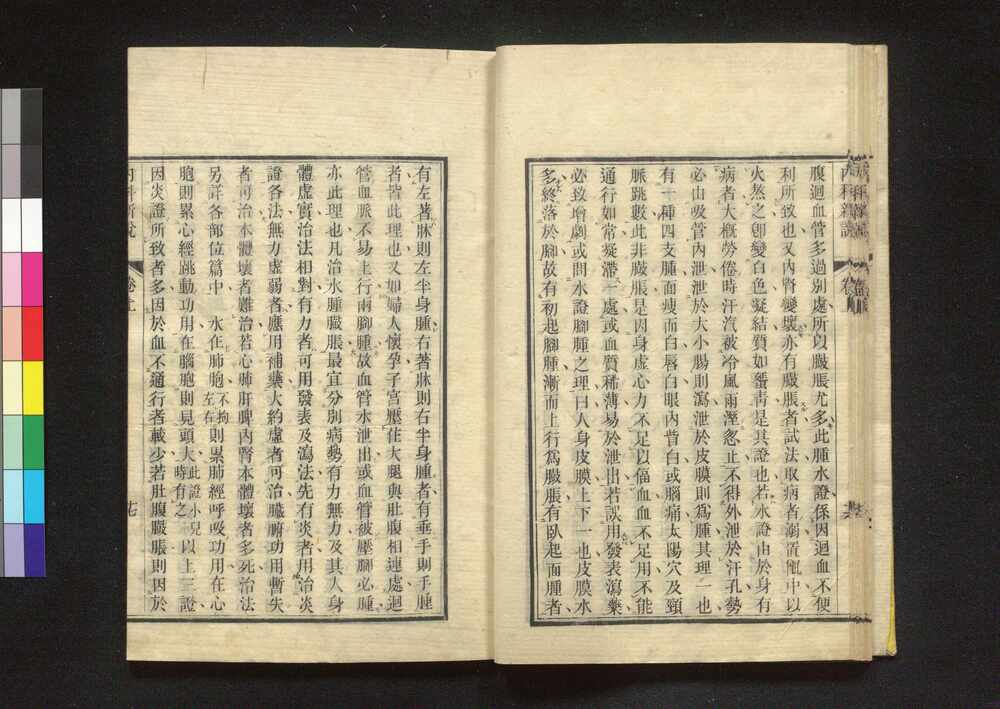 內科新說
腹迴血管多過別處所以臌脹尤多此腫水證係因迴血不便
利所致也又內腎變壞亦有臌脹者試法取病者溺置甑中以
火熬之卽變白色凝結質如蛋靑是其證也若水證由於身有
病者大槪勞倦時汗汽被冷風雨溼忽止不得外泄於汗孔勢
必由吸管內泄泄於大小腸則瀉泄於皮膜則爲腫其理一也
有一種四支腫面痩而白唇白眼內眥白或腦痛太陽穴及頸
脈跳數此非臌脹是因身虛心力不足以偪血血不足用不能
通行如常凝滯一處或血質稀薄易於泄出若誤用發表瀉藥
必致增劇或問水證脚腫之理曰人身皮膜上下一也皮膜水
多終落於腳故有初起腳腫漸而上行爲臌脹有臥起面腫者
有左著牀則左半身腫右著牀則右半身腫者有垂手則手腫
者皆此理也又如婦人懷孕子宮壓住大腿與肚腹相連處迴
管血脈不易上行兩腳腫故血管水泄出或血管被壓腳必腫
亦此理也凡治水腫臌脹最宜分別病勢有力無力及其人身
體虛實治法相對有力者可用發表及瀉法先有炎者用治炎
證各法無力虛弱者應用補藥大約虛者可治臟腑功用暫失
者可治本體壞者難治若心肺肝脾內腎本體壞者多死治法
另詳各部位篇中　水在肺胞不拘左右則累肺經呼吸功用在心
胞則累心經跳動功用在腦胞則見頭大此證小兒時有之以上三證
因炎證所致者多因於血不通行者載少若肚腹臌脹則因於
內科新說　卷上